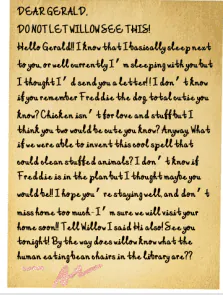 DEAR GERALD,
DO NOT LET WILLOW SEE THIS!
Hello Gerald!! I know that I basically sleep next
to you, or well currently I'm sleeping with you but
I thought I'd send you a letter!! I don't know
if you remember Freddie the dog, total cutie you
know? Chicken isn't for love and stuff but I
think you two would be cute you know? Anyway. What
if we were able to invent this cool spell that
could clean stuffed animals? I don't know if
Freddie is in the plan but I thought maybe you
would be!! I hope you're staying well, and don't
miss home too much - I'm sure we will visit your
home soon!! Tell Willow I said Hi also! See you
tonight! By the way does willow know what the
human eating bean chairs in the library are??